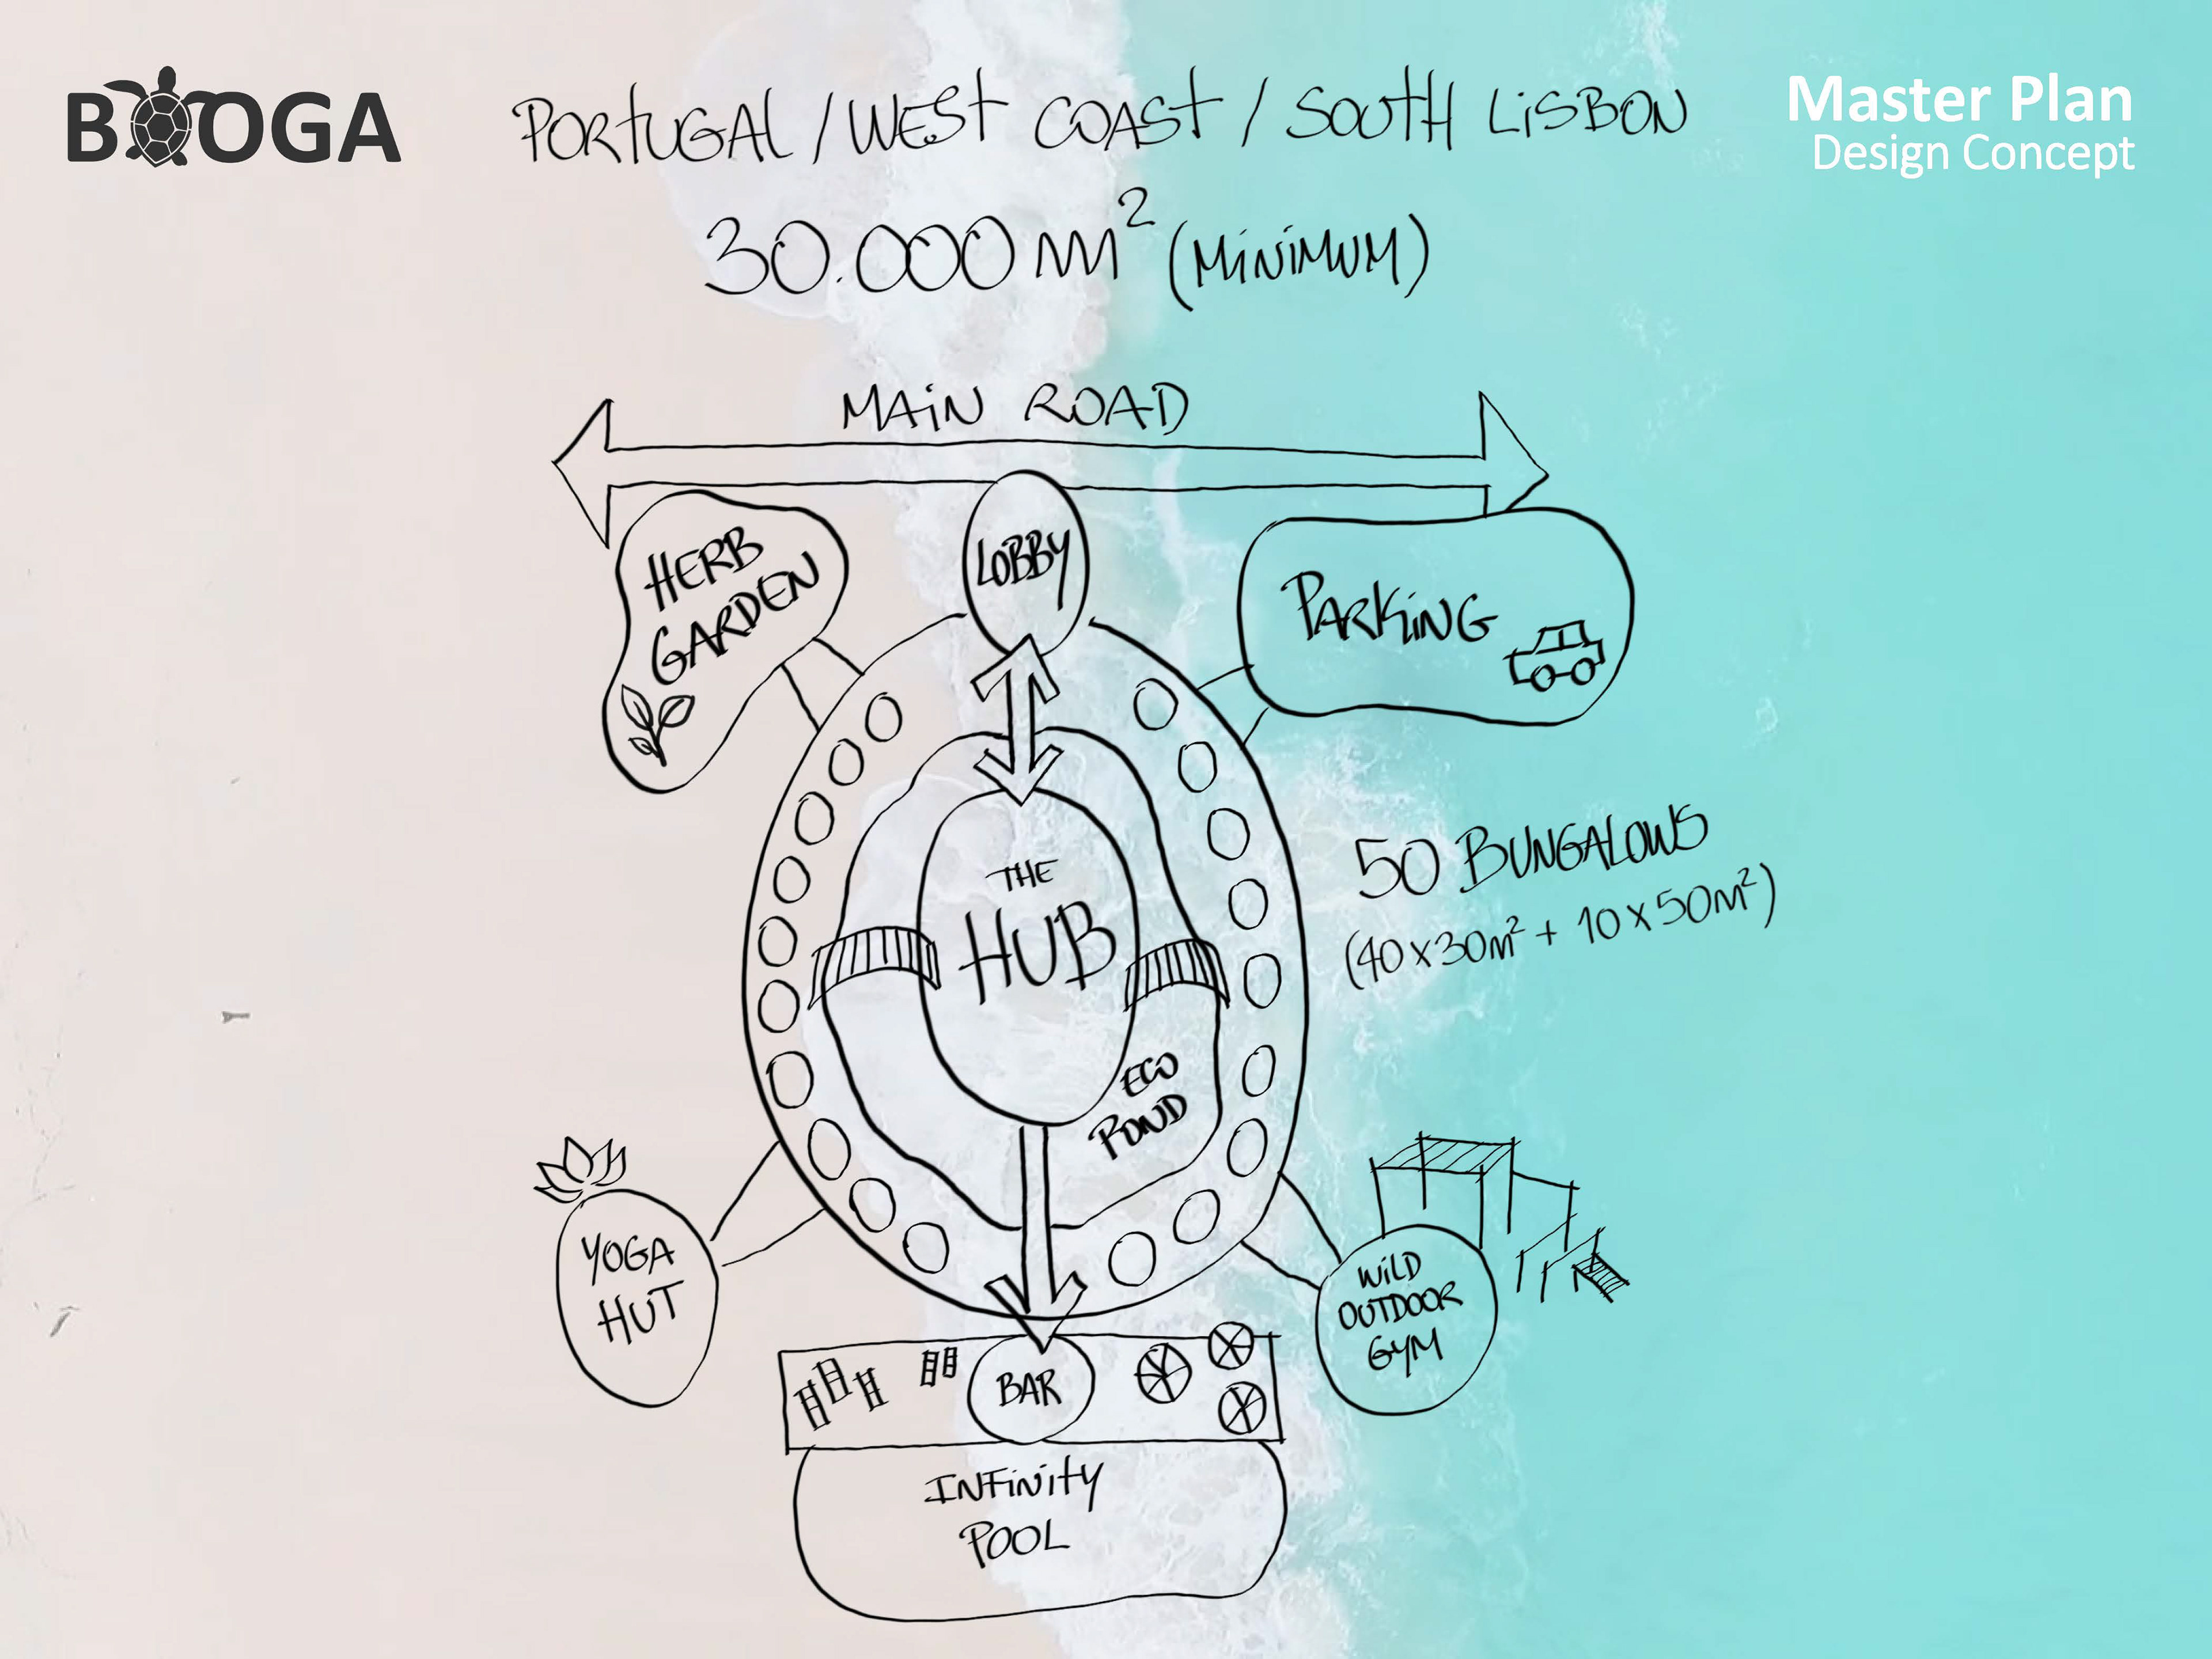 BOOGA
PORTUGAL / WEST COAST / SOUTH LISBON
Master Plan
Design Concept
30.000 m² (MINIMUM)
MAIN ROAD
HERB
GARDEN
LOBBY
PARKING
THE
HUB
50 BUNGALOWS
(40x30m² + 10x50m²)
ECO
POND
YOGA
HUT
WILD
OUTDOOR
GYM
BAR
INFINITY
POOL